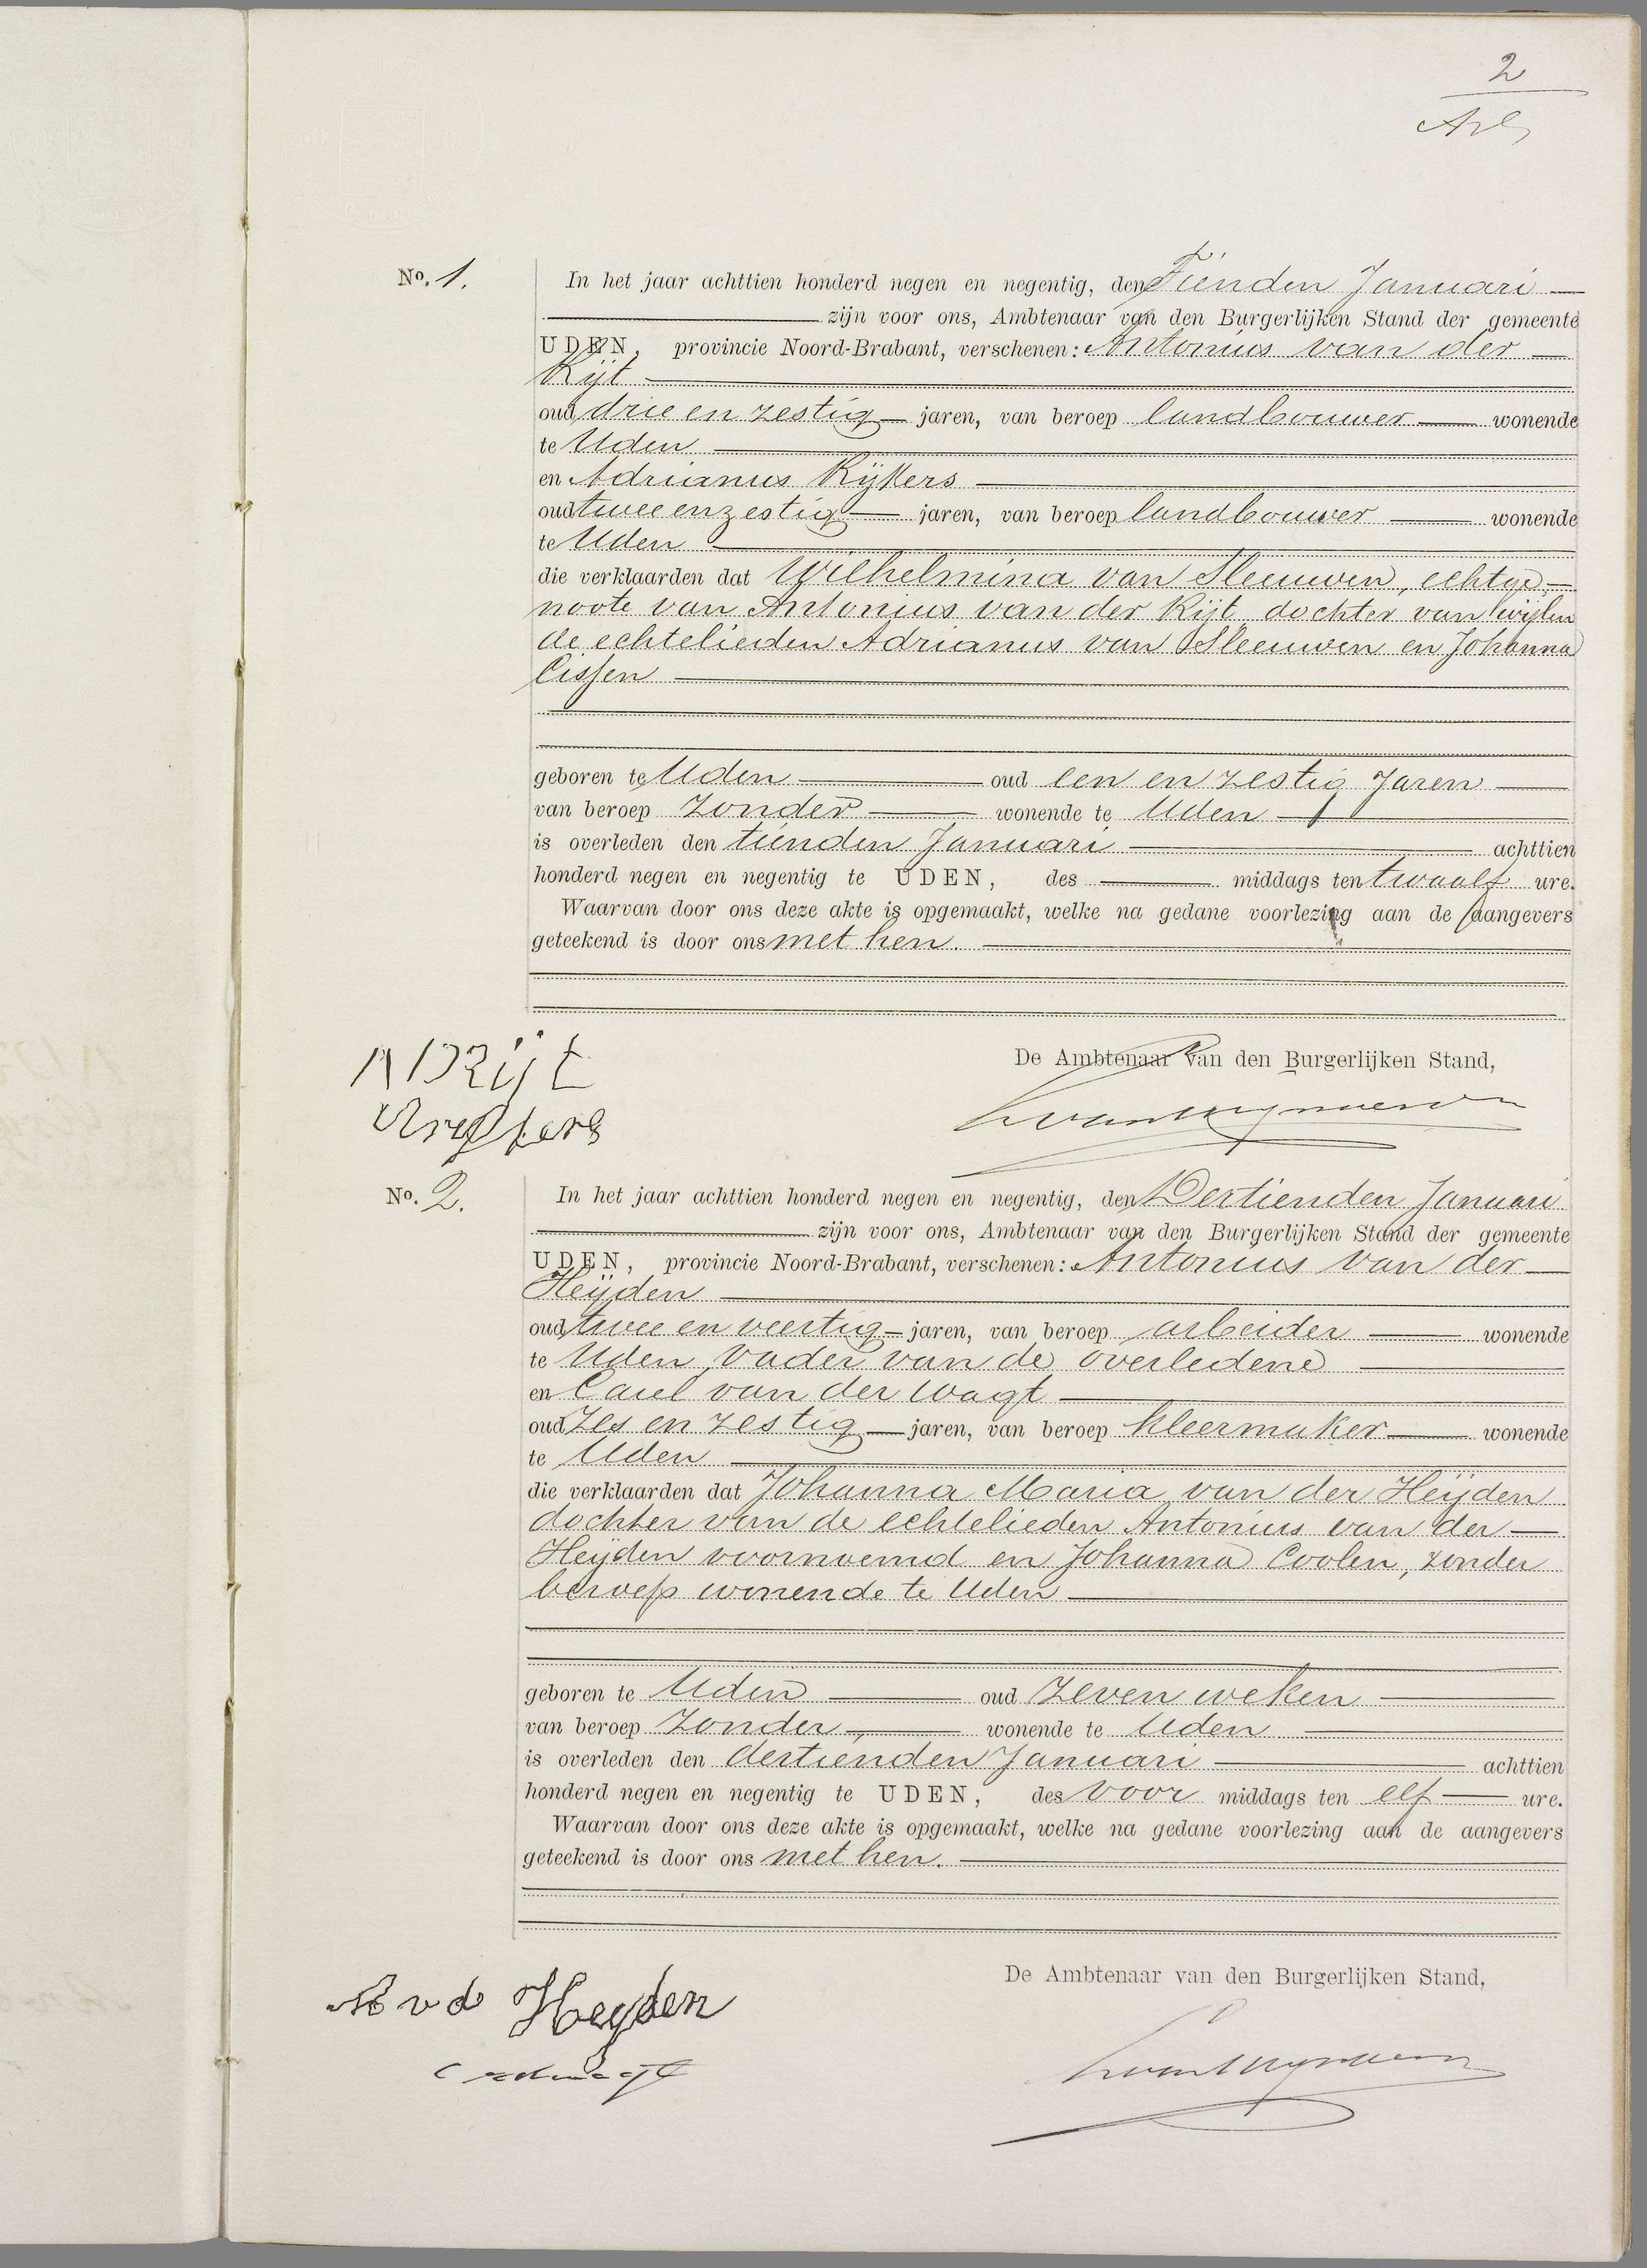 2
No. 1.
In het jaar achttien honderd negen en negentig, den Tienden Januari
zijn voor ons, Ambtenaar van den Burgerlijken Stand der gemeente
UDEN, provincie Noord-Brabant, verschenen: Antonius van der
Rijt
oud drie en zestig jaren, van beroep landbouwer wonende
te Uden
en Adrianus Rijkers
oud twee en zestig jaren, van beroep landbouwer wonende
te Uden
die verklaarden dat Wilhelmina van Sleeuwen, echtge-
noote van Antonius van der Rijt dochter van wijlen
de echtelieden Adrianus van Sleeuwen en Johanna
Cissen
geboren te Uden oud een en zestig Jaren
van beroep zonder wonende te Uden
is overleden den tienden Januari achttien
honderd negen en negentig te UDEN, des middags ten twaalf ure.
Waarvan door ons deze akte is opgemaakt, welke na gedane voorlezing aan de aangevers
geteekend is door ons met hen.
De Ambtenaar van den Burgerlijken Stand,
No. 2.
In het jaar achttien honderd negen en negentig, den Dertienden Januari
zijn voor ons, Ambtenaar van den Burgerlijken Stand der gemeente
UDEN, provincie Noord-Brabant, verschenen: Antonius van der
Heijden
oud twee en veertig jaren, van beroep arbeider wonende
te Uden, vader van de overledene
en Carel van der Wagt
oud zes en zestig jaren, van beroep kleermaker wonende
te Uden
die verklaarden dat Johanna Maria van der Heijden
dochter van de echtelieden Antonius van der
Heijden voornoemd en Johanna Coolen, zonder
beroep wonende te Uden
geboren te Uden oud zeven weken
van beroep zonder wonende te Uden
is overleden den dertienden Januari achttien
honderd negen en negentig te UDEN, des voor middags ten elf ure.
Waarvan door ons deze akte is opgemaakt, welke na gedane voorlezing aan de aangevers
geteekend is door ons met hen.
De Ambtenaar van den Burgerlijken Stand,
A v d Heyden